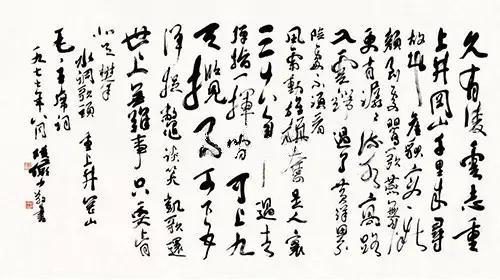 久有凌雲志重
上井冈山千里来寻
故地旧貌变新
颜到处莺歌燕舞
更有潺潺流水高路
入雲端过了黄洋界
险处不须看
风雷动旌旗奋是人寰
三十八年过去
弹指一挥间可上九
天揽月可下五
洋捉鳖谈笑凯歌还
世上无难事只要肯
登攀
水调歌头 重上井冈山
毛主席词
一九七七年六月 书